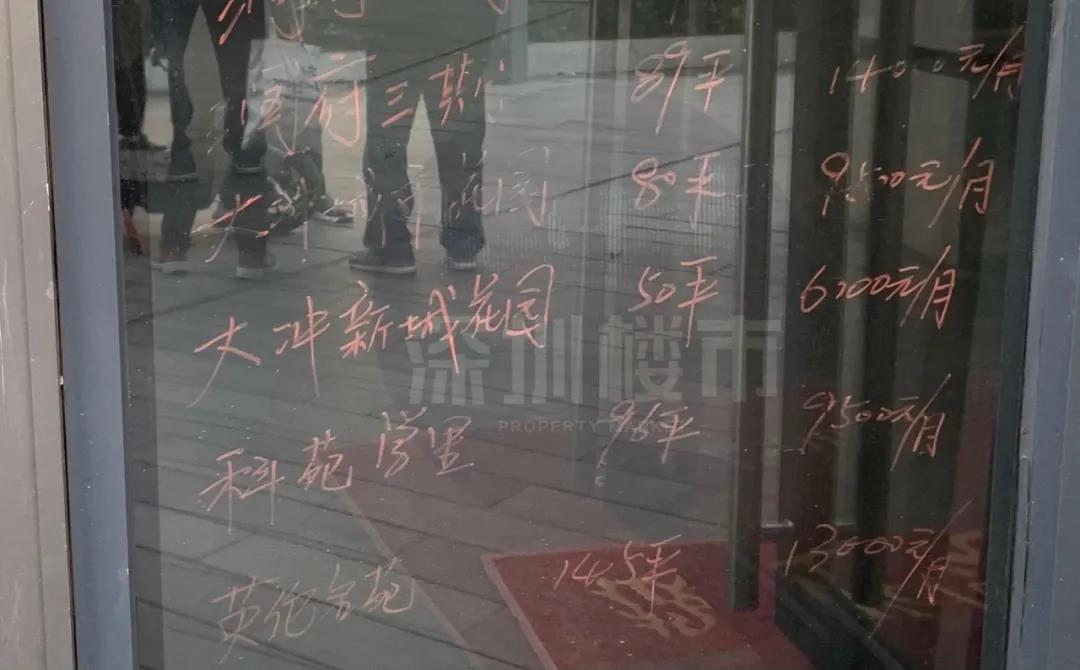 府三期 89平 14000元/月
大冲城市花园 80平 9500元/月
大冲新城花园 50平 6700元/月
深圳楼市
PROPERTY MARKET
科苑学里 96平 9500元/月
英伦名苑 145平 13000元/月